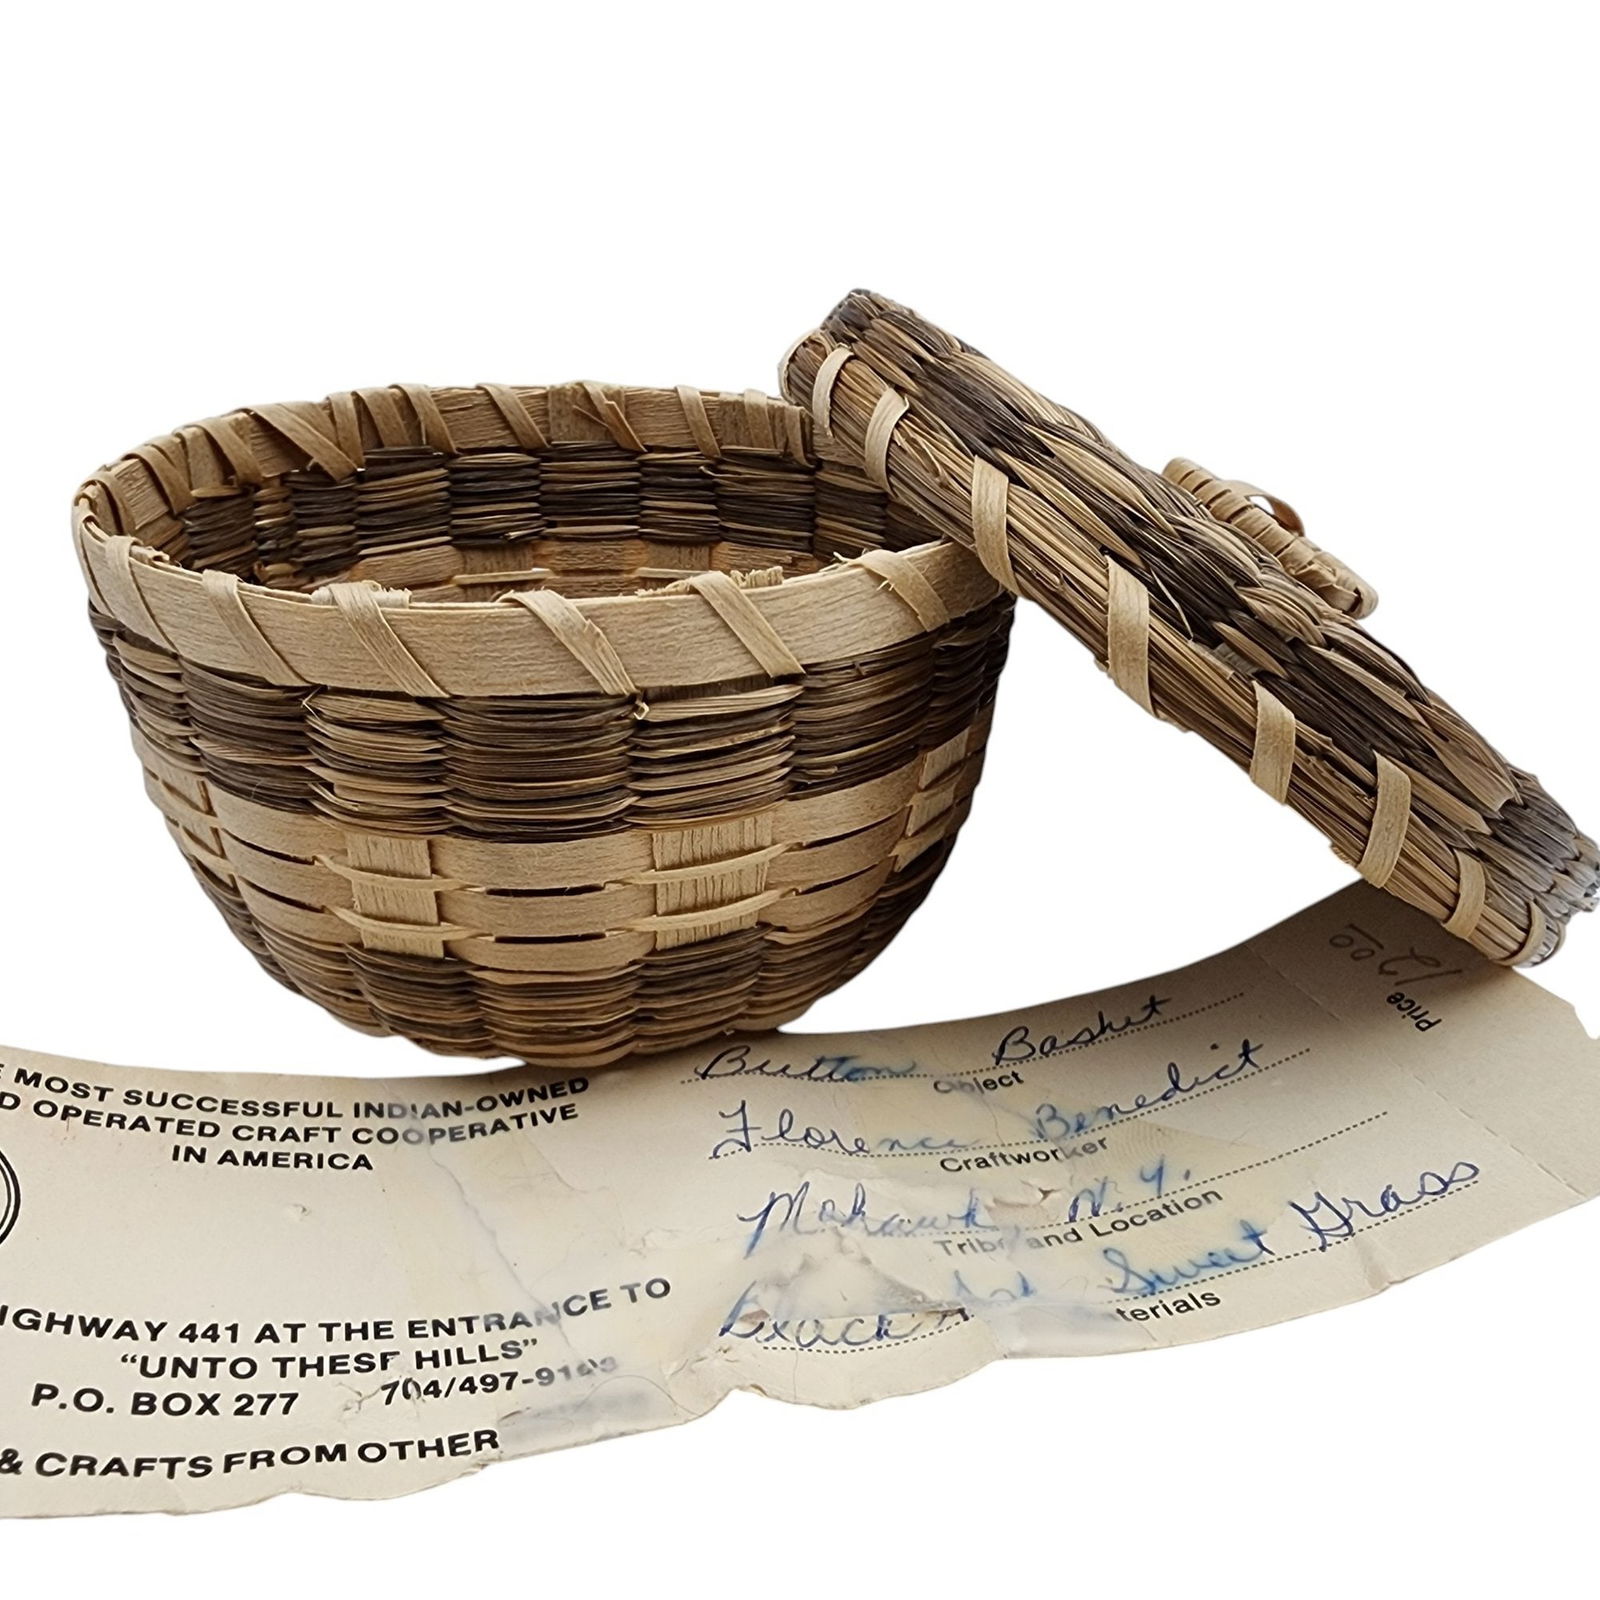 MOST SUCCESSFUL INDIAN-OWNED
OPERATED CRAFT COOPERATIVE
IN AMERICA
HIGHWAY 441 AT THE ENTRANCE TO
“UNTO THESE HILLS”
P.O. BOX 277 704/497-
& CRAFTS FROM OTHER
Button Basket
Object
Florence Benedict
Craftworker
Mohawk, N.Y.
Tribe and Location
Black Ash Sweet Grass
terials
12.00
Price